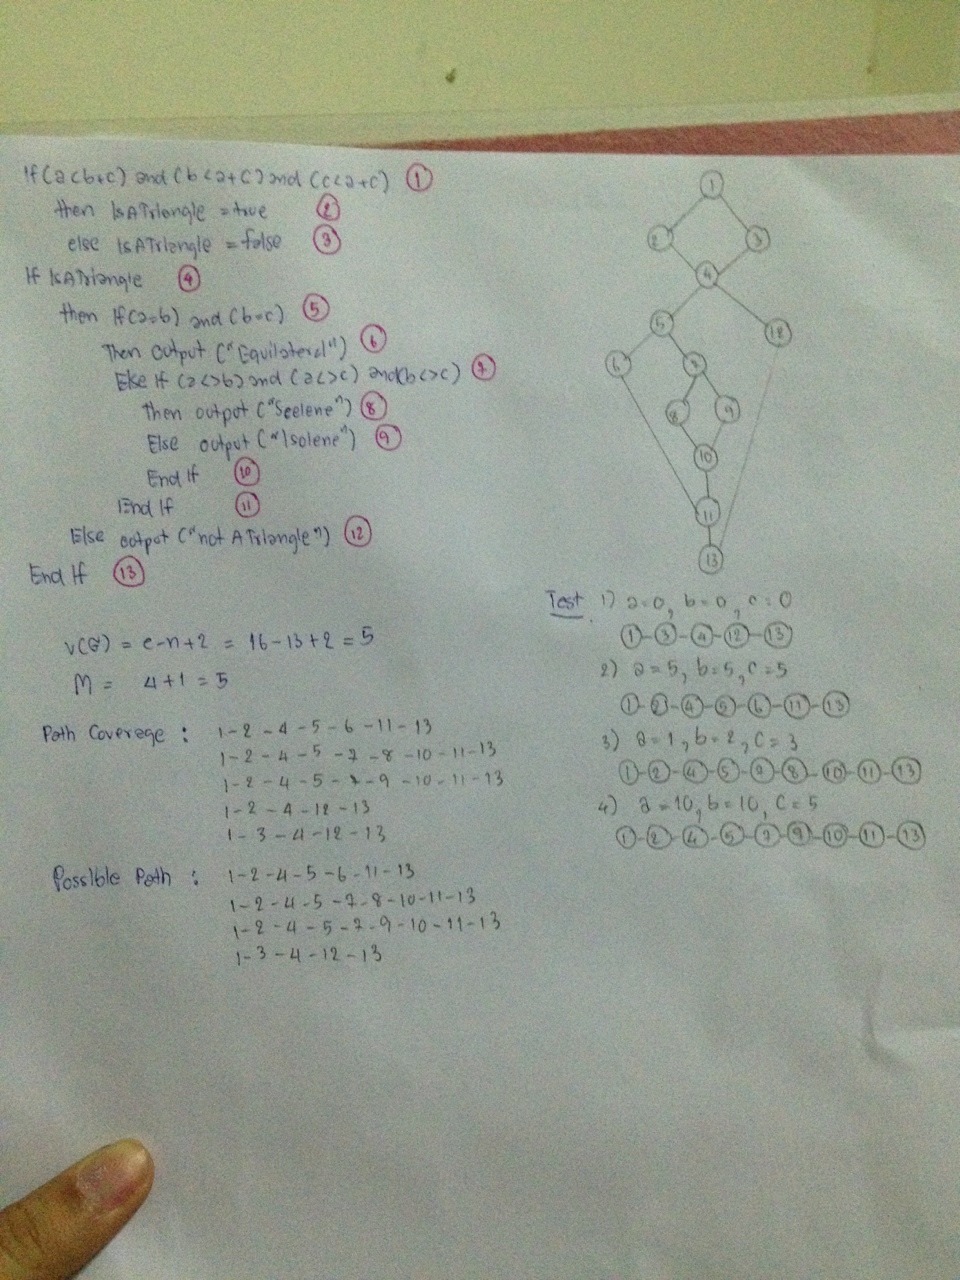 If (a<b+c) and (b<a+c) and (c<a+c) 1
then IsATriangle = true 2
else IsATriangle = false 3
If IsATriangle 4
then If (a=b) and (b=c) 5
Then output ("Equilateral") 6
Else If (a<>b) and (a<>c) and (b<>c) 7
Then output ("Scelene") 8
Else output ("Isolene") 9
End If 10
End If 11
Else output ("not A Triangle") 12
End If 13
V(G) = e-n+2 = 16-13+2 = 5
M = 4+1 = 5
Path Coverage : 1-2-4-5-6-11-13
1-2-4-5-7-8-10-11-13
1-2-4-5-7-9-10-11-13
1-2-4-12-13
1-3-4-12-13
Possible Path : 1-2-4-5-6-11-13
1-2-4-5-7-8-10-11-13
1-2-4-5-7-9-10-11-13
1-3-4-12-13
1
2 3
4
5 12
6 7
8 9
10
11
13
Test 1) a=0, b=0, c=0
1-3-4-12-13
2) a=5, b=5, c=5
1-2-4-5-6-11-13
3) a=1, b=2, c=3
1-2-4-5-7-8-10-11-13
4) a=10, b=10, c=5
1-2-4-5-7-9-10-11-13